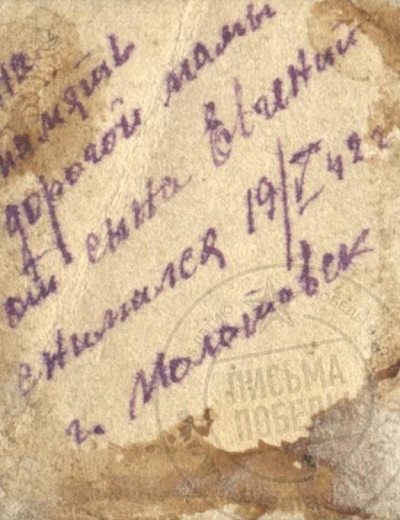 на
память
дорогой мамы
от сына Евгений
снимался 19/V 42 г
г. Молотовск
ПИСЬМА
ПОБЕДЫ